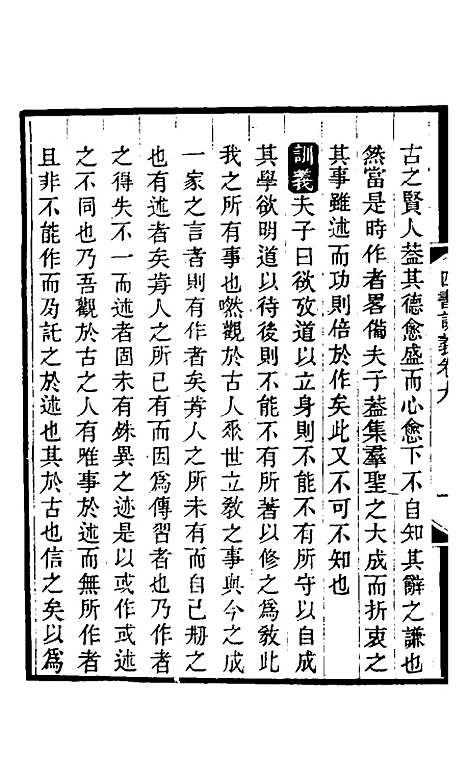 四書訓義卷九　一
古之賢人葢其德愈盛而心愈下不自知其辭之謙也
然當是時作者畧備夫子葢集羣聖之大成而折衷之
其事雖述而功則倍於作矣此又不可不知也
訓義夫子曰欲攷道以立身則不能不有所守以自成
其學欲明道以待後則不能不有所著以修之爲敎此
我之所有事也嘫觀於古人衆世立敎之事與今之成
一家之言者則有作者矣昔人之所未有而自己刱之
也有述者矣昔人之所已有而因爲傳習者也乃作者
之得失不一而述者固未有殊異之迹是以或作或述
之不同也乃吾觀於古之人有唯事於述而無所作者
且非不能作而乃託之於述也其於古也信之矣以爲